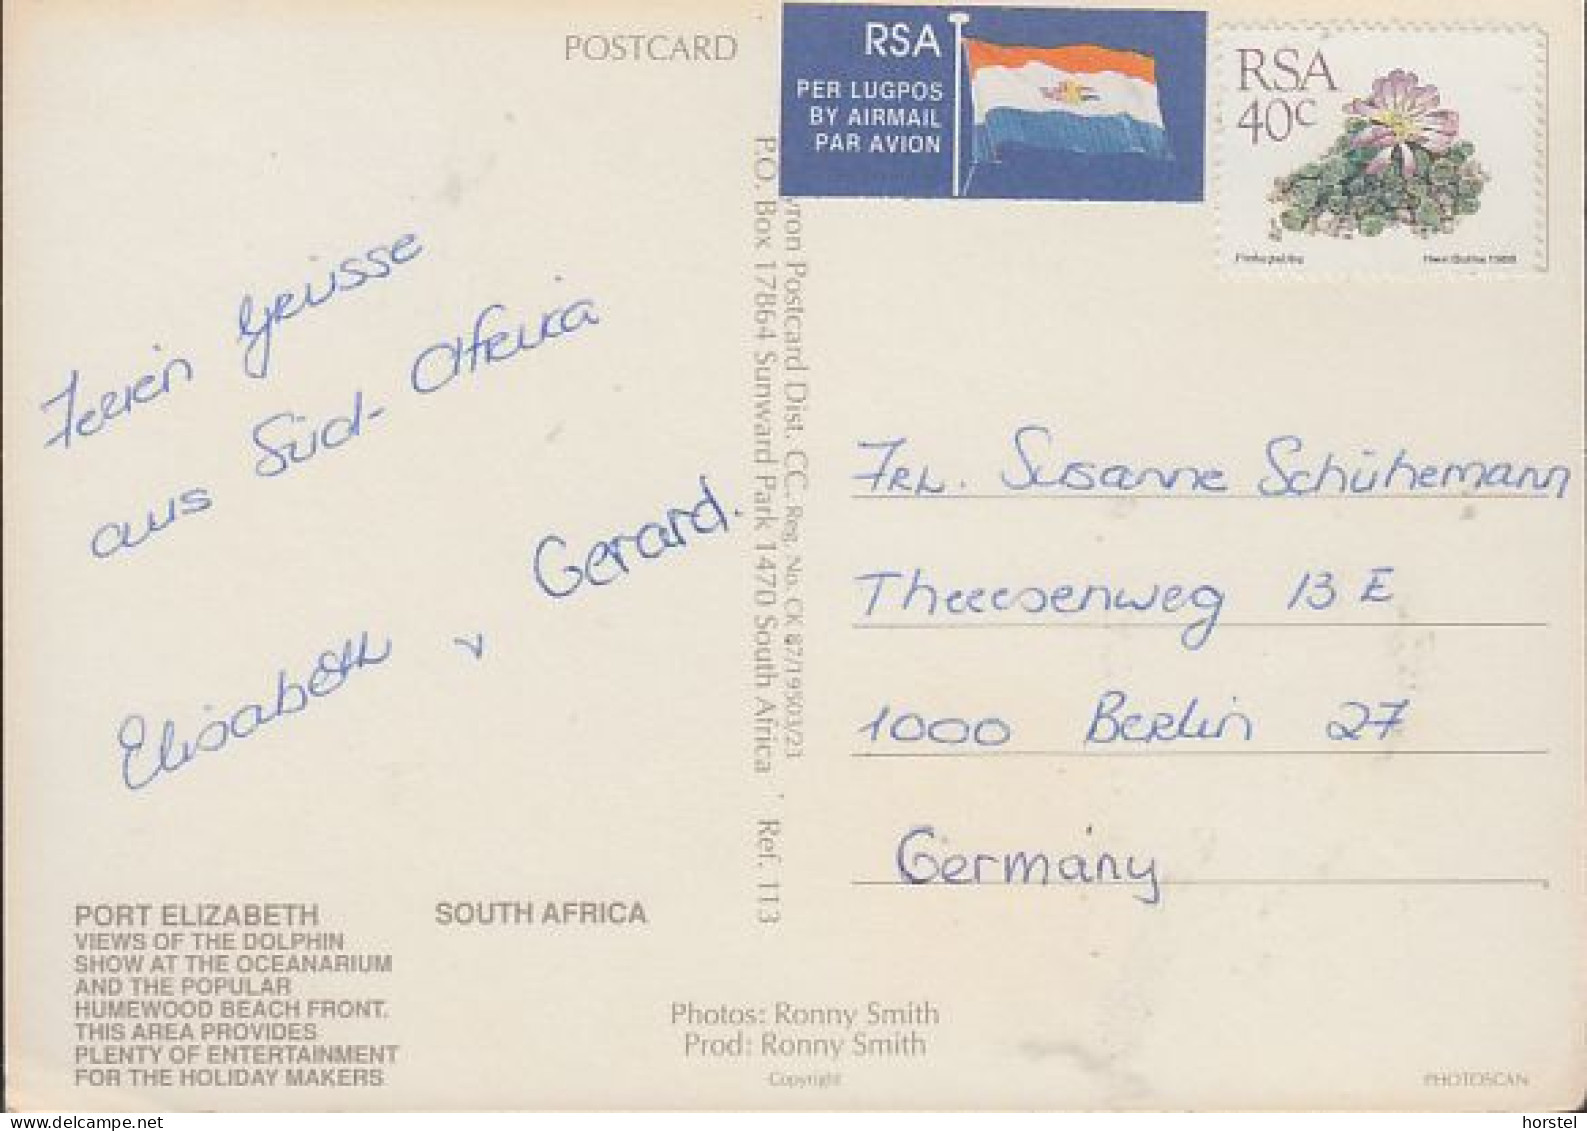 POSTCARD
RSA
PER LUGPOS
BY AIRMAIL
PAR AVION
RSA
40c
1988
Ferien Grüsse
aus Süd-Afrika
Elisabeth u Gerard.
yron Postcard Dist. CC. Reg. No. CK 87/19503/23
P.O. Box 17864 Sunward Park 1470 South Africa Ref. 113
FRL. Susanne Schühemann
Theeesenweg 13 E
1000 Berlin 27
Germany
PORT ELIZABETH SOUTH AFRICA
VIEWS OF THE DOLPHIN
SHOW AT THE OCEANARIUM
AND THE POPULAR
HUMEWOOD BEACH FRONT.
THIS AREA PROVIDES
PLENTY OF ENTERTAINMENT
FOR THE HOLIDAY MAKERS
Photos: Ronny Smith
Prod: Ronny Smith
Copyright
PHOTOSCAN
delcampe.net
horstel